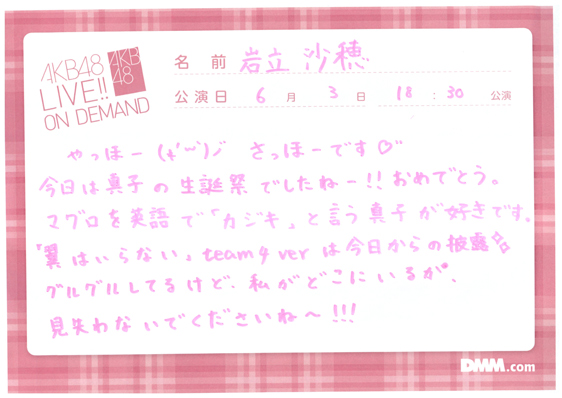 AKB48
LIVE!!
ON DEMAND
AKB
48
名 前 岩立 沙穂
公演日 6 月 3 日 18 : 30 公演
やっほー さっほーです♡
今日は真子の生誕祭でしたねー!! おめでとう。
マグロを英語で「カジキ」と言う真子が好きです。
「翼はいらない」team4 verは今日からの披露
グルグルしてるけど、私がどこにいるか、
見失わないでくださいね〜!!!
DMM.com